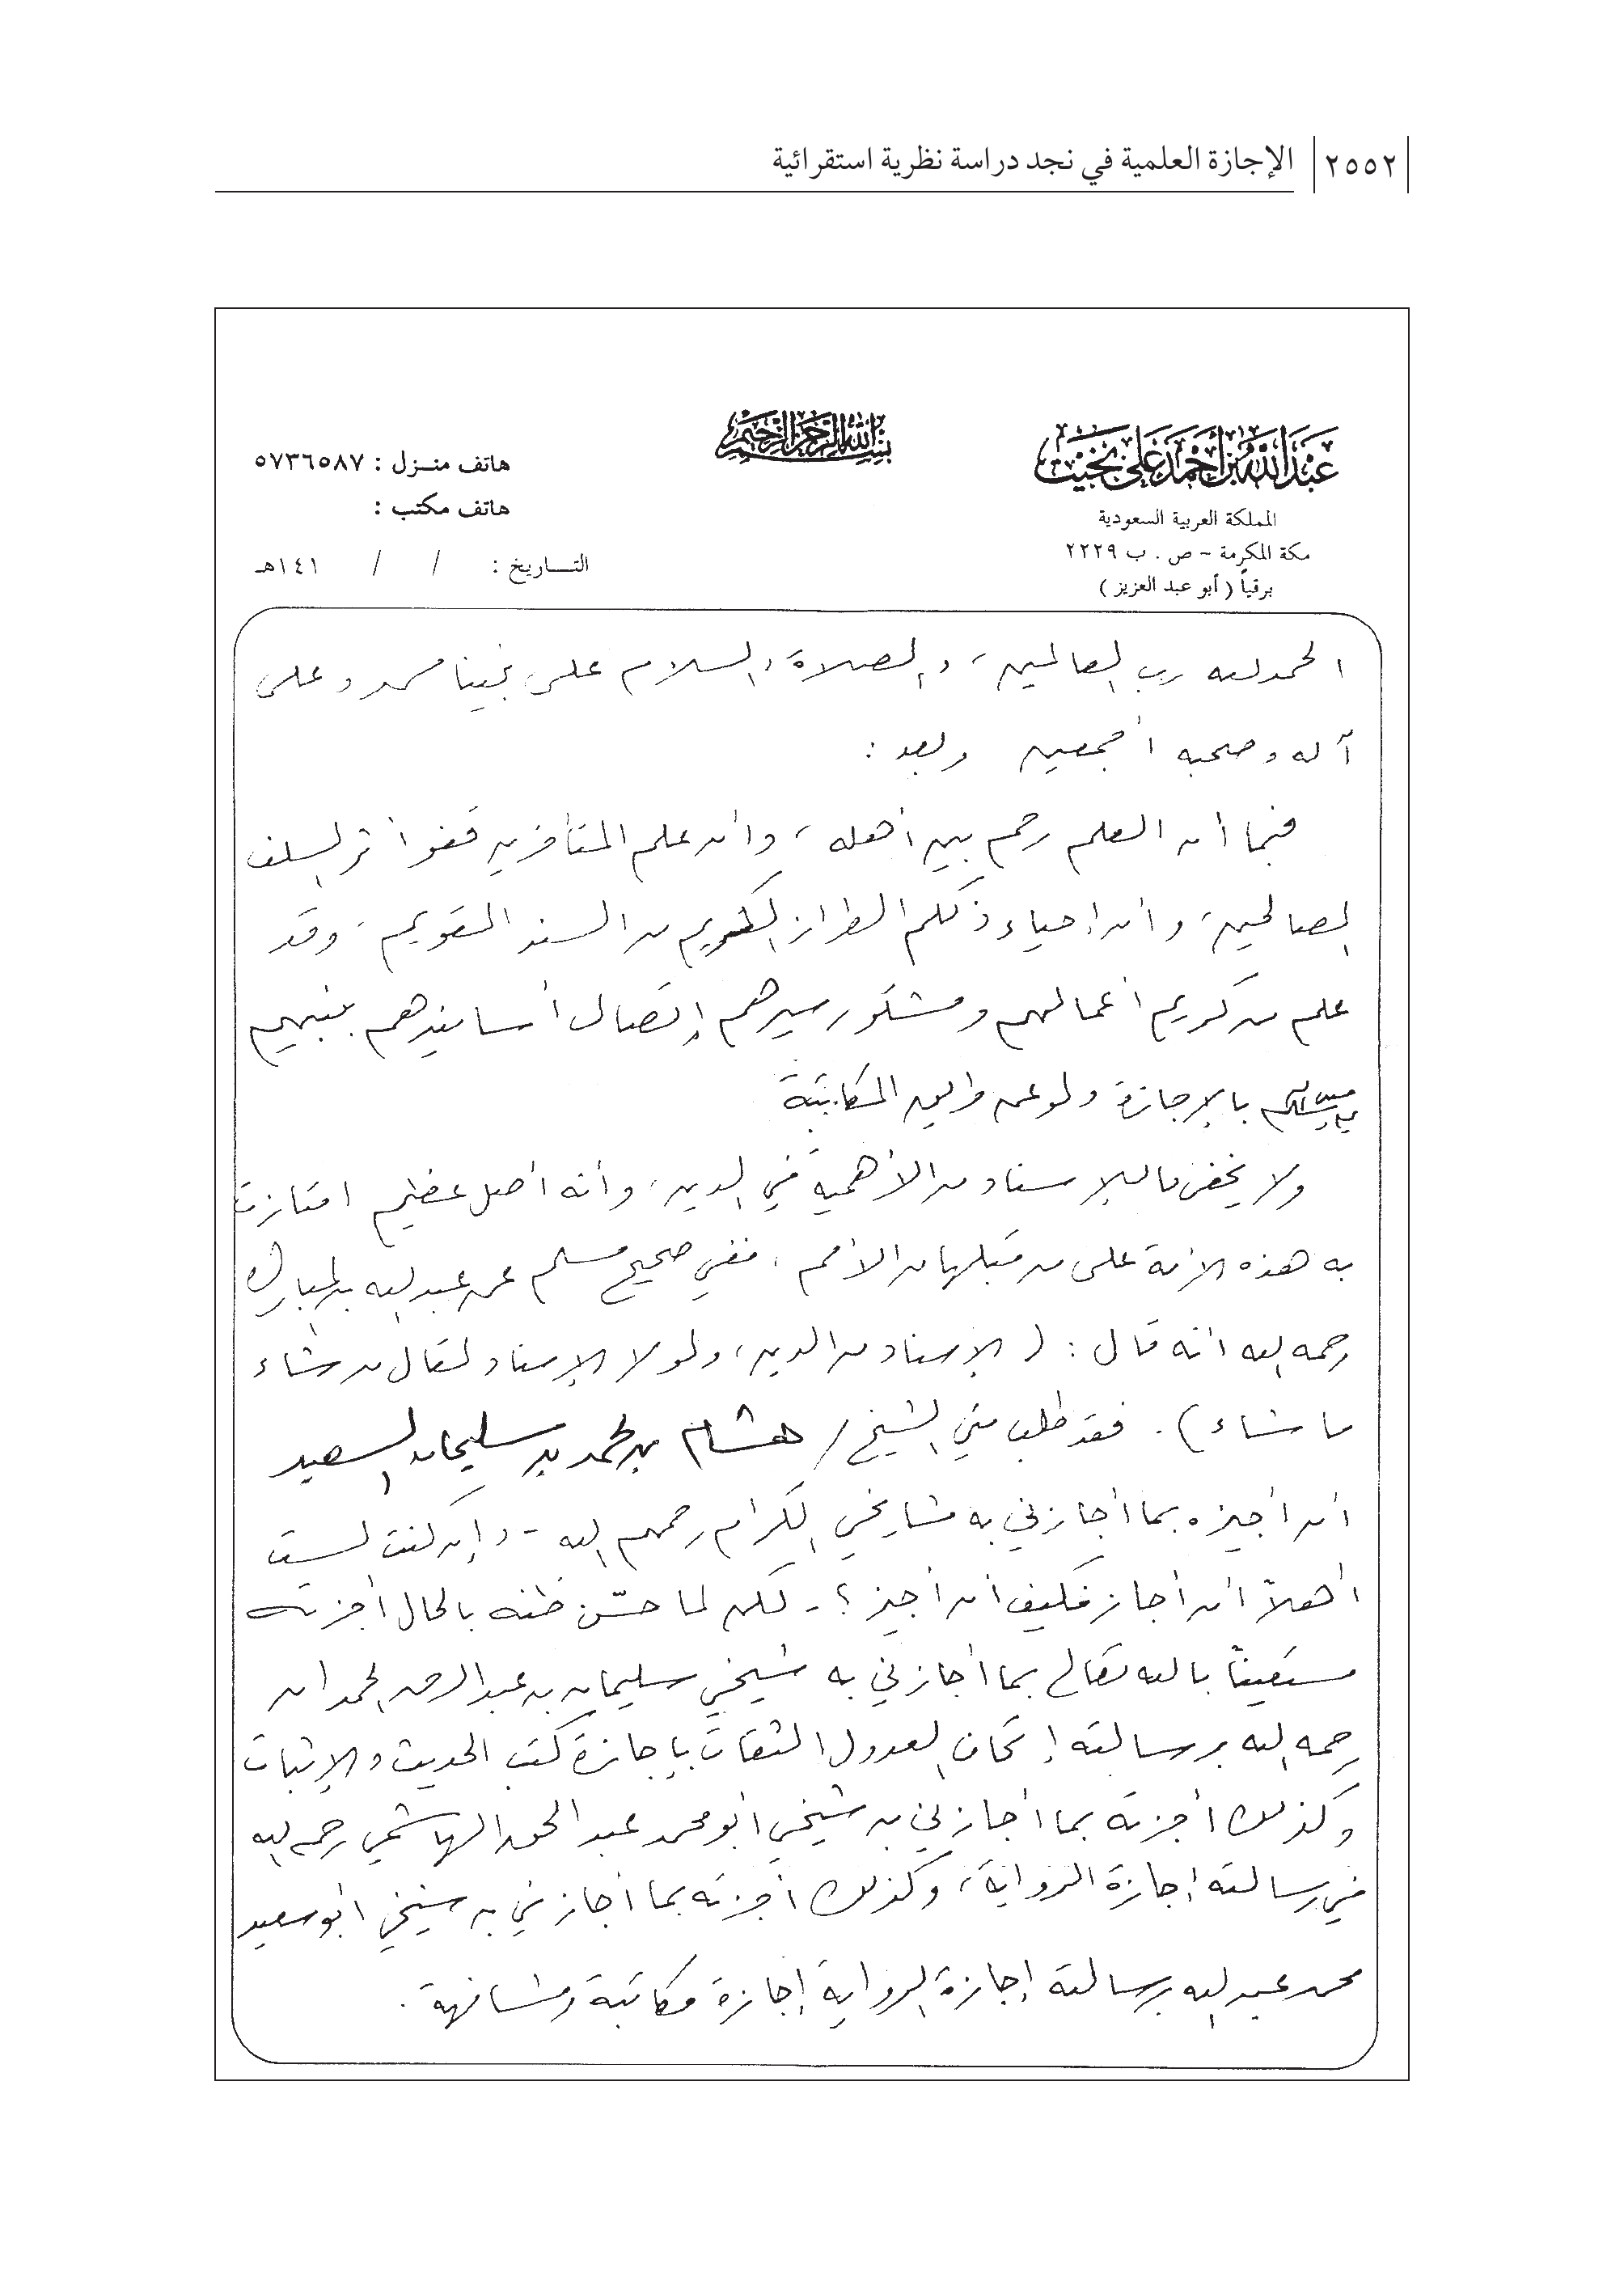 ٢٥٥٢ الإجازة العلمية في نجد دراسة نظرية استقرائية
عبدالله بن أحمد علي بخيت
المملكة العربية السعودية
مكة المكرمة - ص . ب ٢٢٢٩
برقياً ( أبو عبد العزيز )
بسم الله الرحمن الرحيم
هاتف منـزل : ٥٧٣٦٥٨٧
هاتف مكتب :
التـــاريخ : / / ١٤١هـ
الحمد لله رب العالمين، والصلاة والسلام على نبينا محمد وعلى
آله وصحبه أجمعين وبعد :
فبما أن العلم رحم بين أهله، وأن علم المتأخرين قفو أثر السلف
الصالحين، وأن إحياء ذلكم الطراز الكريم من السند القويم، وقد
علم من كريم أعمالهم ومشكور سيرهم إتصال أسانيدهم بنبيهم
صلى الله عليه وسلم بالإجازة ولو عن طريق المكاتبة
ولا يخفى ما للإسناد من الأهمية في الدين، وأنه أصل عظيم امتازت
به هذه الأمة على من قبلها من الأمم، ففي صحيح مسلم عن عبد الله بن المبارك
رحمه الله أنه قال : ( الإسناد من الدين، ولولا الإسناد لقال من شاء
ما شاء ) . فقد طلب مني الشيخ / هشام بن محمد بن سليمان السعيد
أن أجيزه بما أجازني به مشايخي الكرام رحمهم الله - وإن كنت لست
أهلاً أن أجاز فكيف أن أجيز ؟ - لكن لما حسّن ظنه بالحال أجزته
مستعيناً بالله تعالى بما أجازني به شيخي سليمان بن عبد الرحمن الحمدان
رحمه الله برسالته إتحاف العدول الثقات بإجازة كتب الحديث والإثبات
وكذلك أجزته بما أجازني به شيخي أبو محمد عبد الحق الهاشمي رحمه الله
في رسالته إجازة الرواية، وكذلك أجزته بما أجازني به شيخي أبو سعيد
محمد عبد الله برسالته إجازة الرواية إجازة مكاتبة ومشافهة .